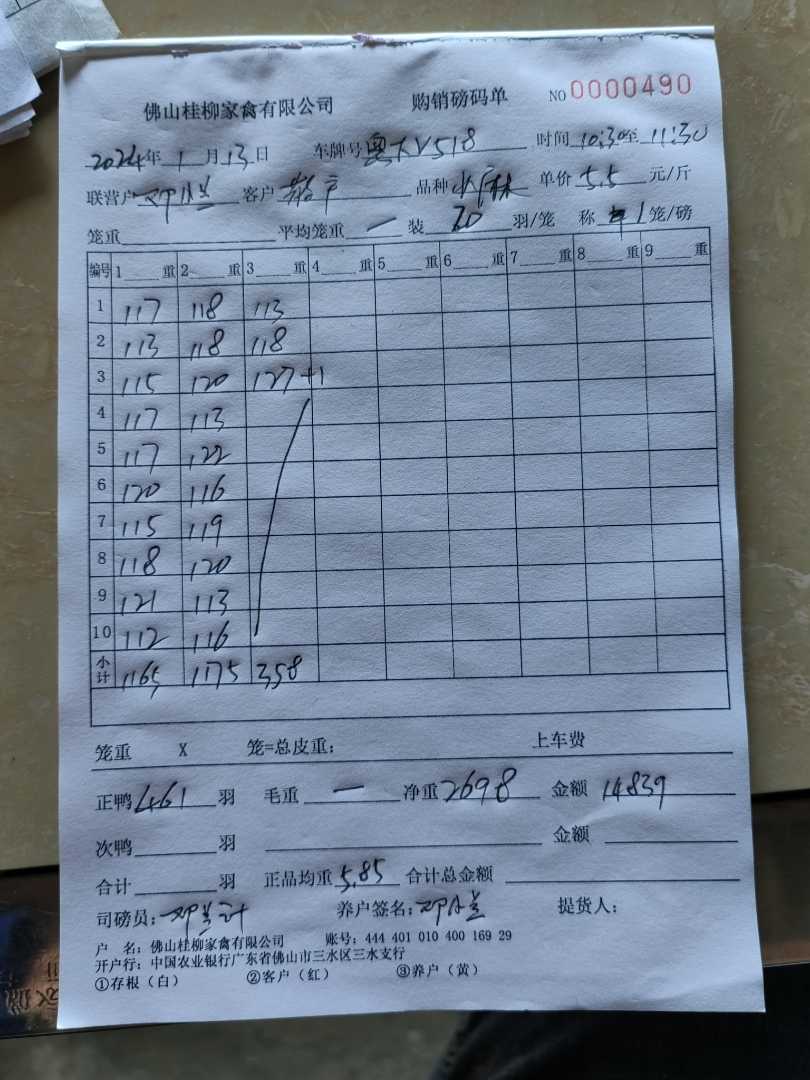 佛山桂柳家禽有限公司 购销磅码单 NO 0000490
2024年 1 月 13 日 车牌号 粤 V518 时间 10:30至 11:30
联营户 邓 兰 客户 散户 品种 麻 单价 5.5 元/斤
笼重 平均笼重 一 装 20 羽/笼 称 1 笼/磅
编号 1 重 2 重 3 重 4 重 5 重 6 重 7 重 8 重 9 重
1 117 118 113
2 113 118 118
3 115 120 127+1
4 117 113
5 117 122
6 120 116
7 115 119
8 118 120
9 121 113
10 112 116
小计 1165 1175 358
笼重 X 笼=总皮重: 上车费
正鸭 461 羽 毛重 一 净重 2698 金额 14839
次鸭 羽 金额
合计 羽 正品均重 5.85 合计总金额
司磅员: 邓兰计 养户签名: 邓 兰 提货人:
户 名: 佛山桂柳家禽有限公司 账号: 444 401 010 400 169 29
开户行: 中国农业银行广东省佛山市三水区三水支行
①存根（白） ②客户（红） ③养户（黄）